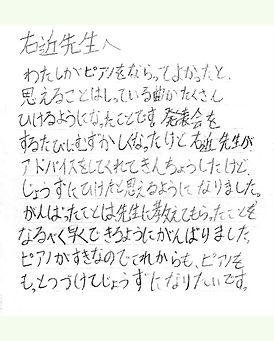 右近先生へ
わたしがピアノをならってよかったと、
思えることはしっている曲がたくさん
ひけるようになったことです。発表会を
するたびにむずかしくなったけど右近先生が
アドバイスをしてくれてきんちょうしたけど、
じょうずにひけたと思えるようになりました。
がんばったことは先生に教えてもらったことを
なるべく早くできるようにがんばりました。
ピアノがすきなのでこれからも、ピアノを
もっとつづけてじょうずになりたいです。